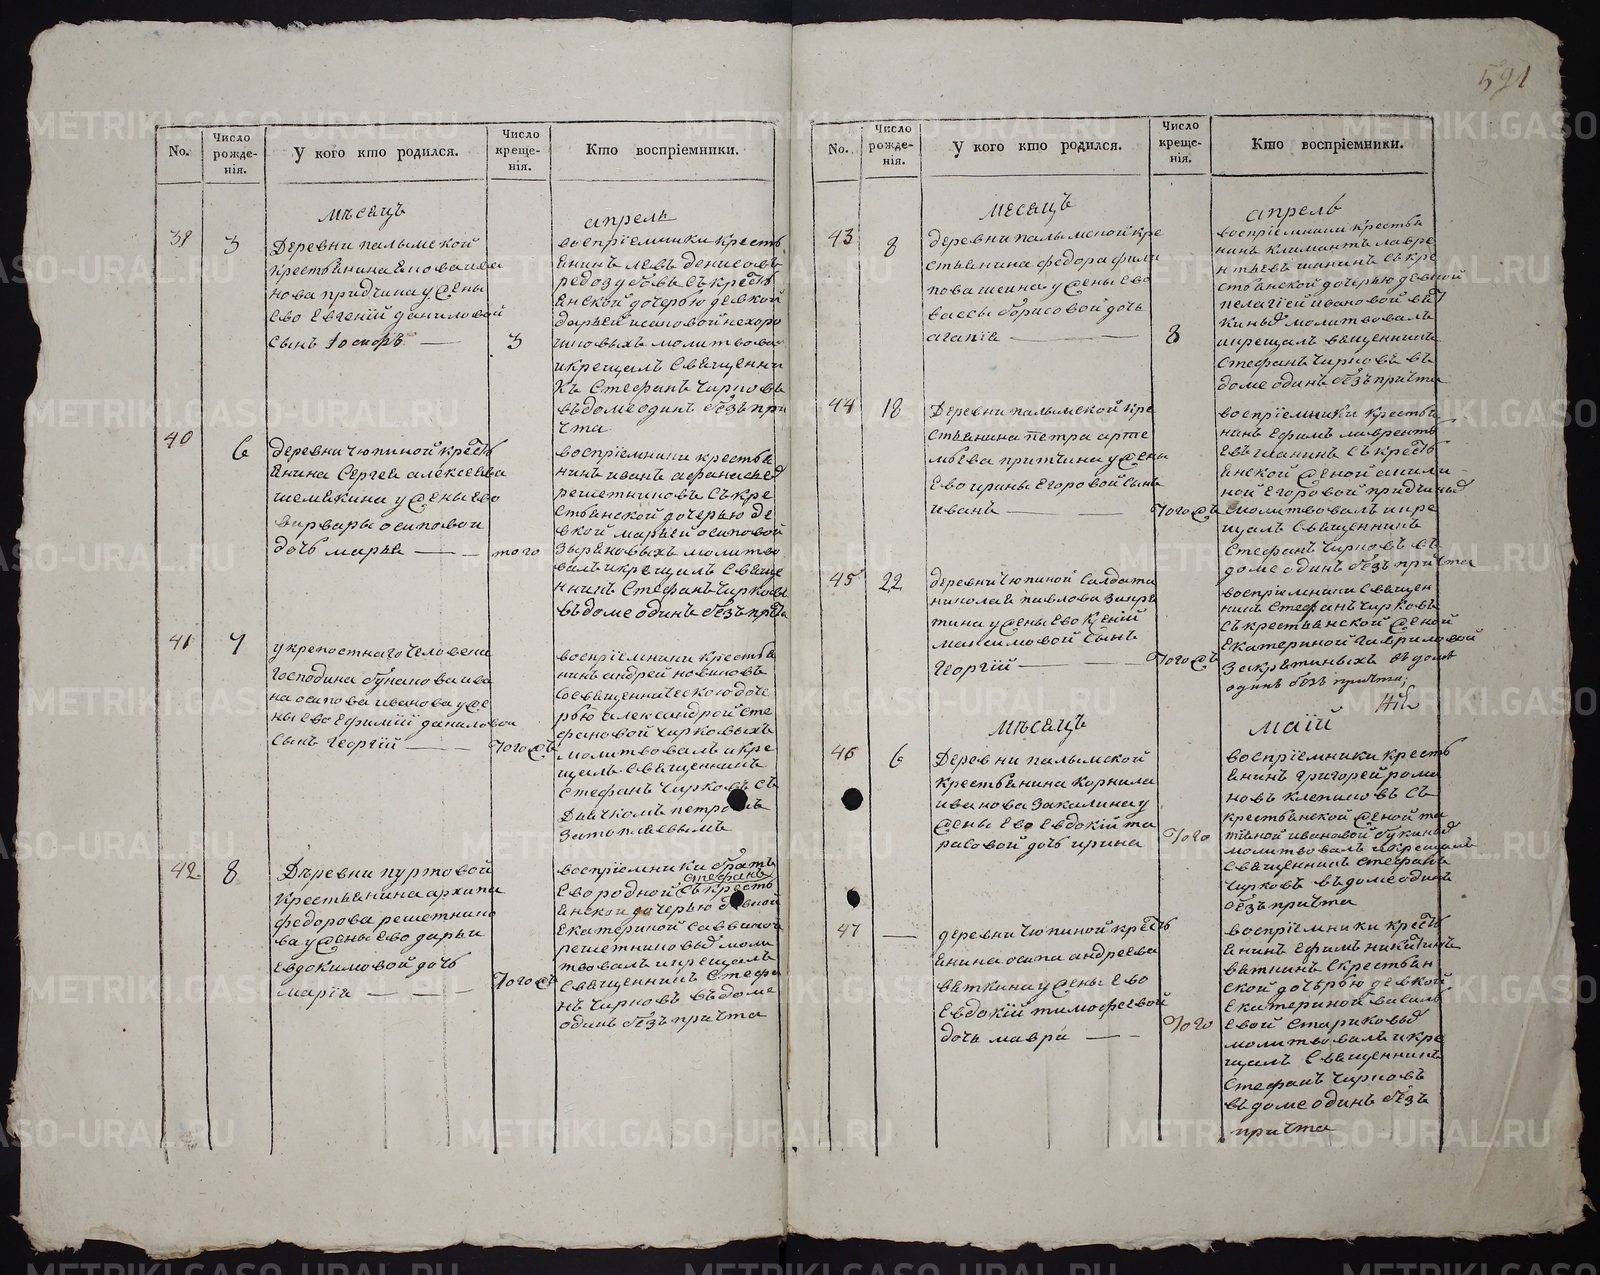 591
No.
Число рожде-нія.
У кого кто родился.
Число креще-нія.
Кто воспріемники.
мѣсяцъ
апрель
3
Деревни палымской
крестьянина
сынъ
3
воспріемники кресть
янинъ левъ денисовъ
съ крестъ
янской дочерью девкой
молитвова
и крещалъ священни
къ Стефанъ чирковъ
въ доме одинъ безъ при
чта
40
6
деревни чюпиной крестъ
янина Сергея алексеева
шемякина у жены ево
варвары осиповой
дочь марья
того
воспріемники крестья
нинъ иванъ афанасьев
решетниковъ съ кре
стьянской дочерью де
вкой марьей осиповой
зыряновыхъ молитво
валъ и крещалъ свяще
нникъ Стефанъ чирковъ
въ доме одинъ безъ причта
41
7
у крепостнаго человека
господина
на осипова иванова у же
ны ево ефимiи данилова
сынъ георгiй
того жъ
воспріемники крестья
нинъ андрей новиковъ
со священническою доче
рью александрой сте
фановой чирковыхъ
молитвовалъ и кре
щалъ священникъ
Стефанъ чирковъ съ
дьячкомъ петромъ
затопляевымъ
42
8
Деревни пуртовой
крестьянина архипа
федорова решетнико
ва у жены ево дарьи
евдокимовой дочь
марiя
того жъ
воспріемники братъ
Стефанъ
ево родной съ кресть
янской дочерью девкой
екатериной саввиной
решетниковыхъ моли
твовалъ и крещалъ
священникъ Стефа
нъ чирковъ въ доме
одинъ безъ причта
No.
Число рожде-нія.
У кого кто родился.
Число креще-нія.
Кто воспріемники.
месяцъ
апрель
43
8
деревни палымской кре
стьянина федора фили
пова шеина у жены ево
вассы борисовой дочь
агапiя
8
воспріемники крестья
нинъ климантъ лавре
нтьевъ шапинъ съ кре
стьянской дочерью девкой
пелагiей ивановой
молитвовалъ
и крещалъ священникъ
Стефанъ чирковъ въ
доме одинъ безъ причта
44
18
Деревни палымской кре
стьянина петра арте
мьева притчина у жены
ево ирины егоровой сынъ
иванъ
того жъ
воспріемники крестья
нинъ ефимъ лавренть
евъ шапинъ съ кресть
янской женой акили-
ной егоровой
молитвовалъ и кре
щалъ священникъ
Стефанъ чирковъ въ
доме одинъ безъ причта
45
22
деревни чюпиной солдата
николая павлова закря
тина у жены ево ксенiи
максимовой сынъ
георгiй
того жъ
воспріемники священ
никъ Стефанъ чирковъ
съ крестьянской женой
екатериной гавриловой
закрятиныхъ въ доме
одинъ безъ причта;
мѣсяцъ
маiй
46
6
Деревни палымской
крестьянина корнила
иванова закалина у
жены ево евдокiи та
расовой дочь ирина
того
воспріемники кресть
янинъ григорей рома
новъ клепиковъ съ
крестьянской женой та
тiяной ивановой
молитвовалъ и крещалъ
священникъ Стефанъ
чирковъ въ доме одинъ
безъ причта
47
деревни чюпиной кресть
янина осипа андреева
вяткина у жены ево
евдокiи тимофеевой
дочь мавра
того
воспріемники кресть
янинъ ефимъ никитинъ
вяткинъ с крестьян
ской дочерью девкой
екатериной василь
евой стариковыхъ
молитвовалъ и кре
щалъ священникъ
Стефанъ чирковъ
въ доме одинъ безъ
причта
METRIKI.GASO-URAL.RU